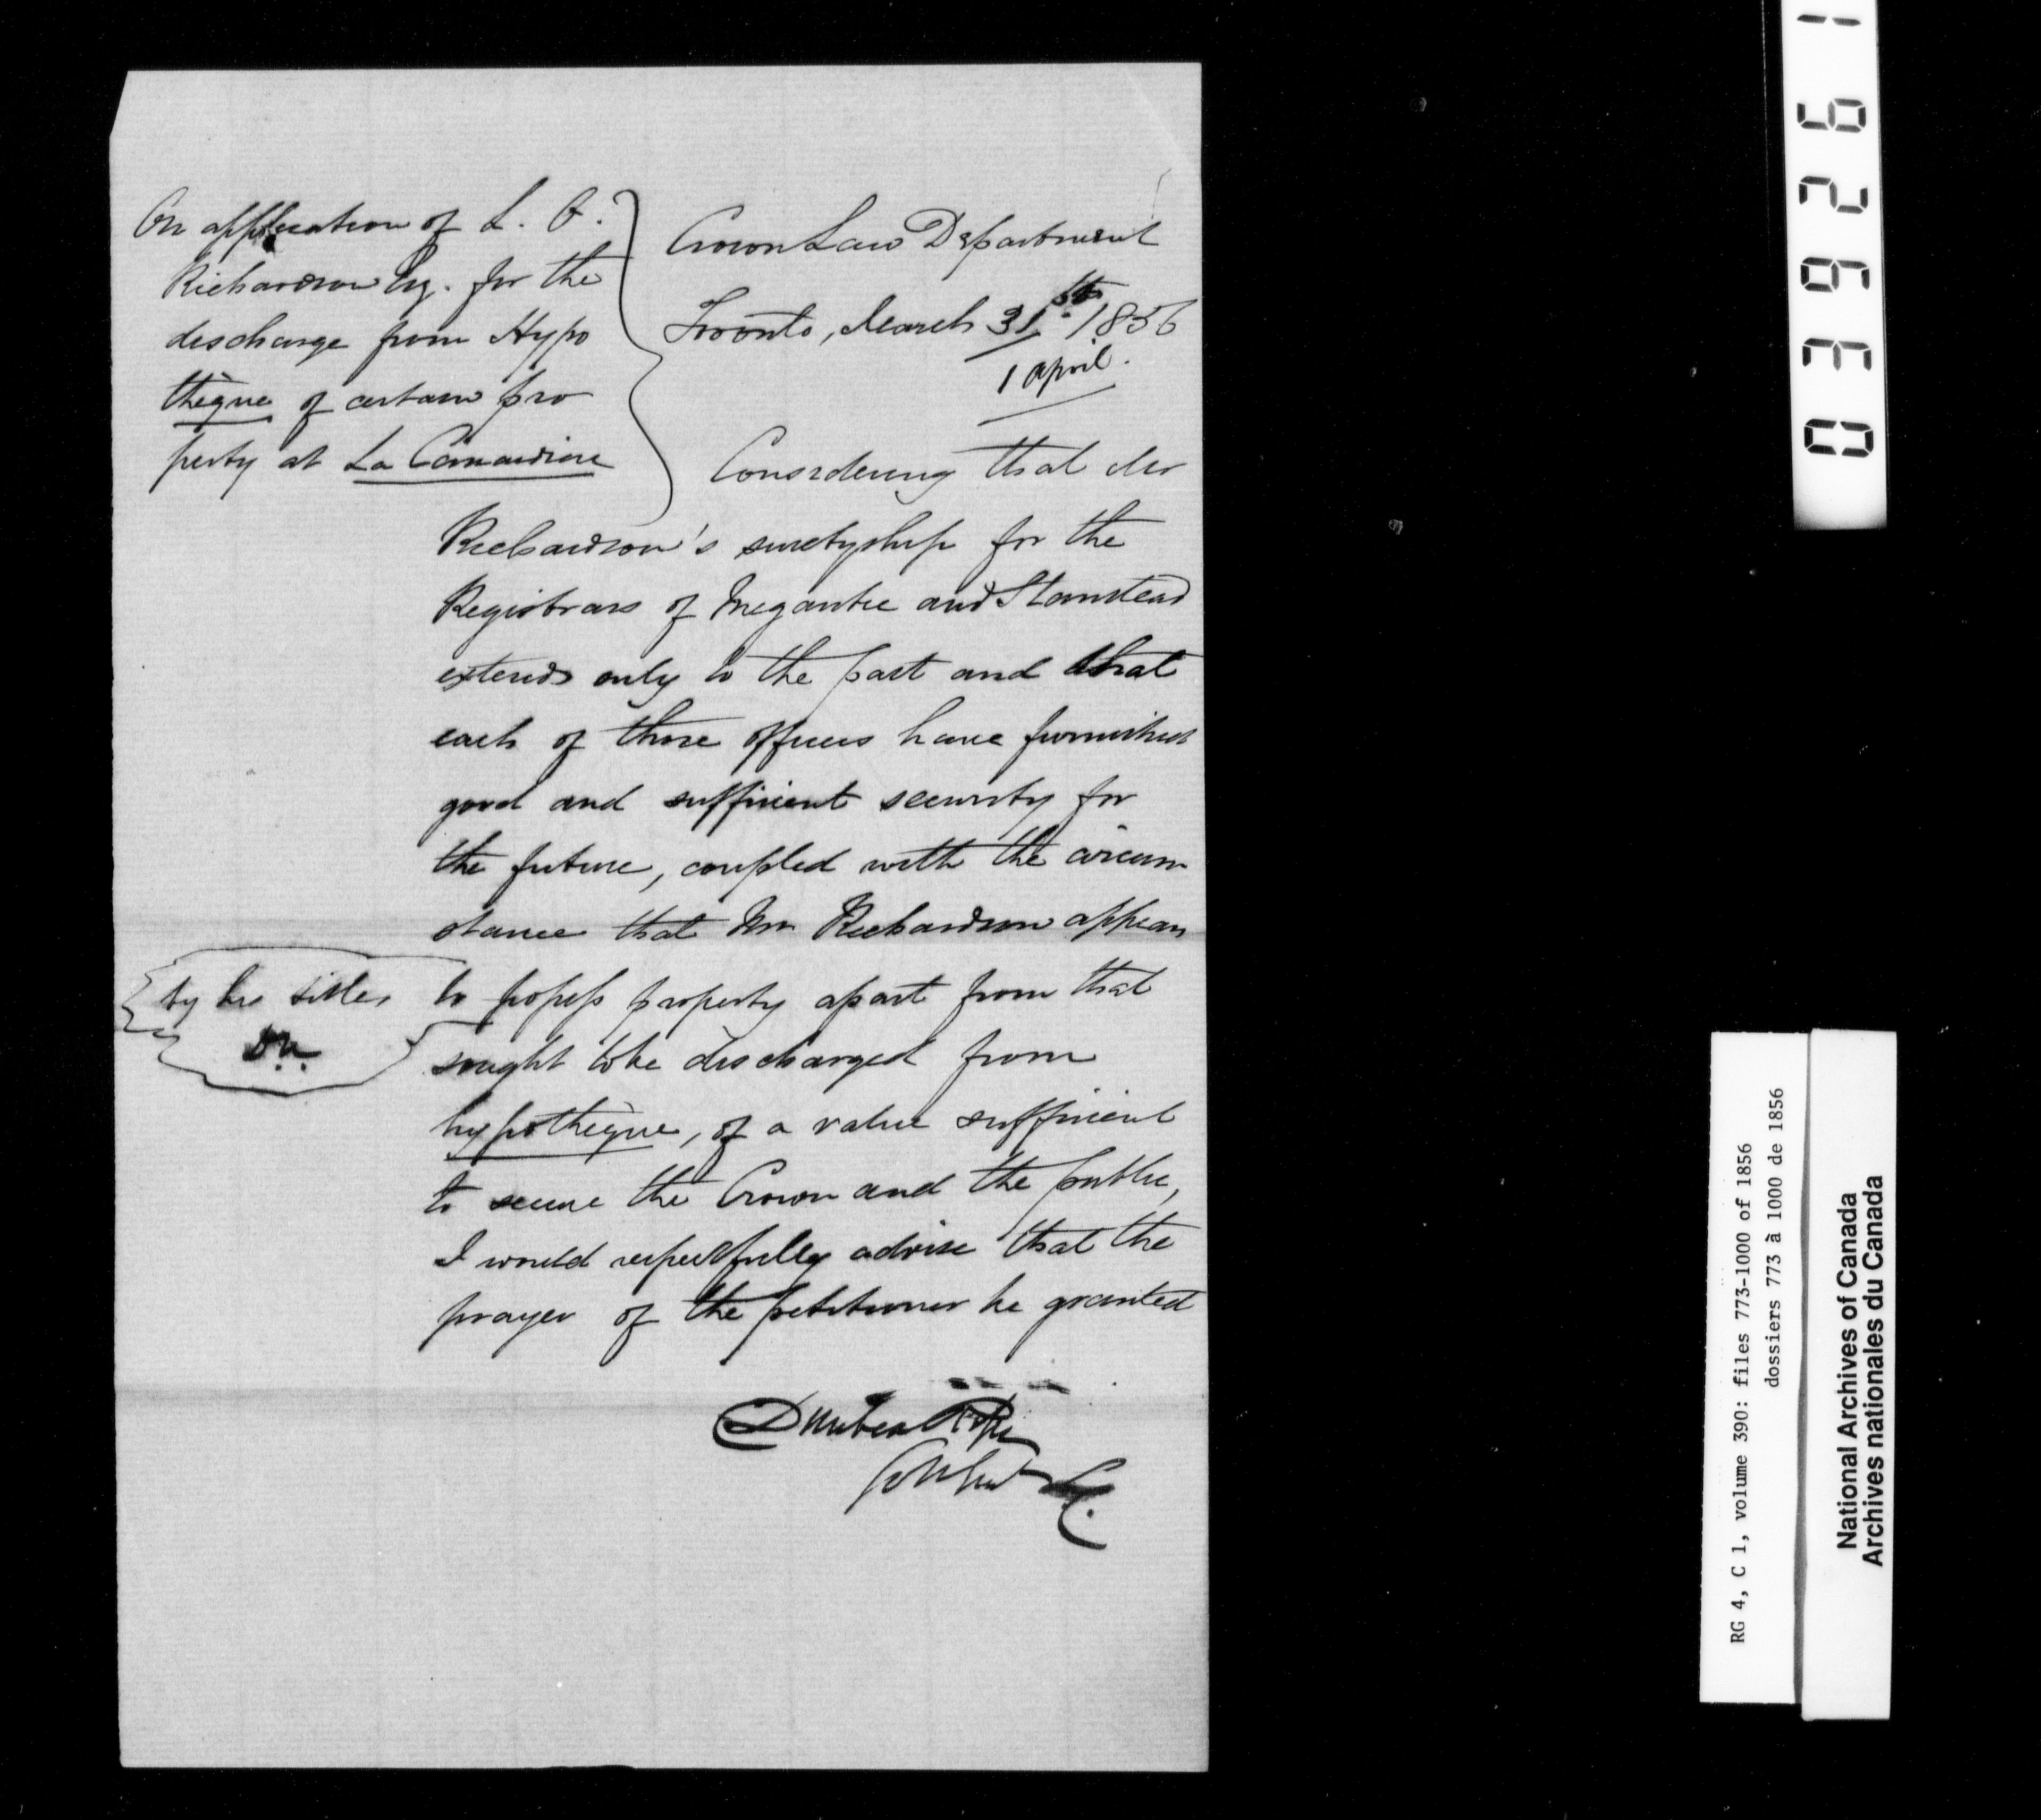 On application of L. O.
Richardson Esq. for the
discharge from Hypo
thèque of certain pro
perty at La Canardière
Crown Law Department
Toronto, March 31st 1856
1 april.
Considering that Mr
Richardson's suretyship for the
Registrars of Megantic and Stanstead
extends only to the past and that
each of those officers have furnished
good and sufficient security for
the future, coupled with the circum
stance that Mr Richardson appears
by his titles
to possess property apart from that
sought to be discharged from
hypothèque, of a value sufficient
to secure the Crown and the public,
I would respectfully advise that the
prayer of the petitioner be granted
Dunbar Ross
Sol Genl
03926 1
RG 4, C 1, volume 390: files 773-1000 of 1856
dossiers 773 à 1000 de 1856
National Archives of Canada
Archives nationales du Canada